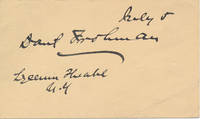 July 5
Danl Frohman
Lyceum Theatre
N.Y